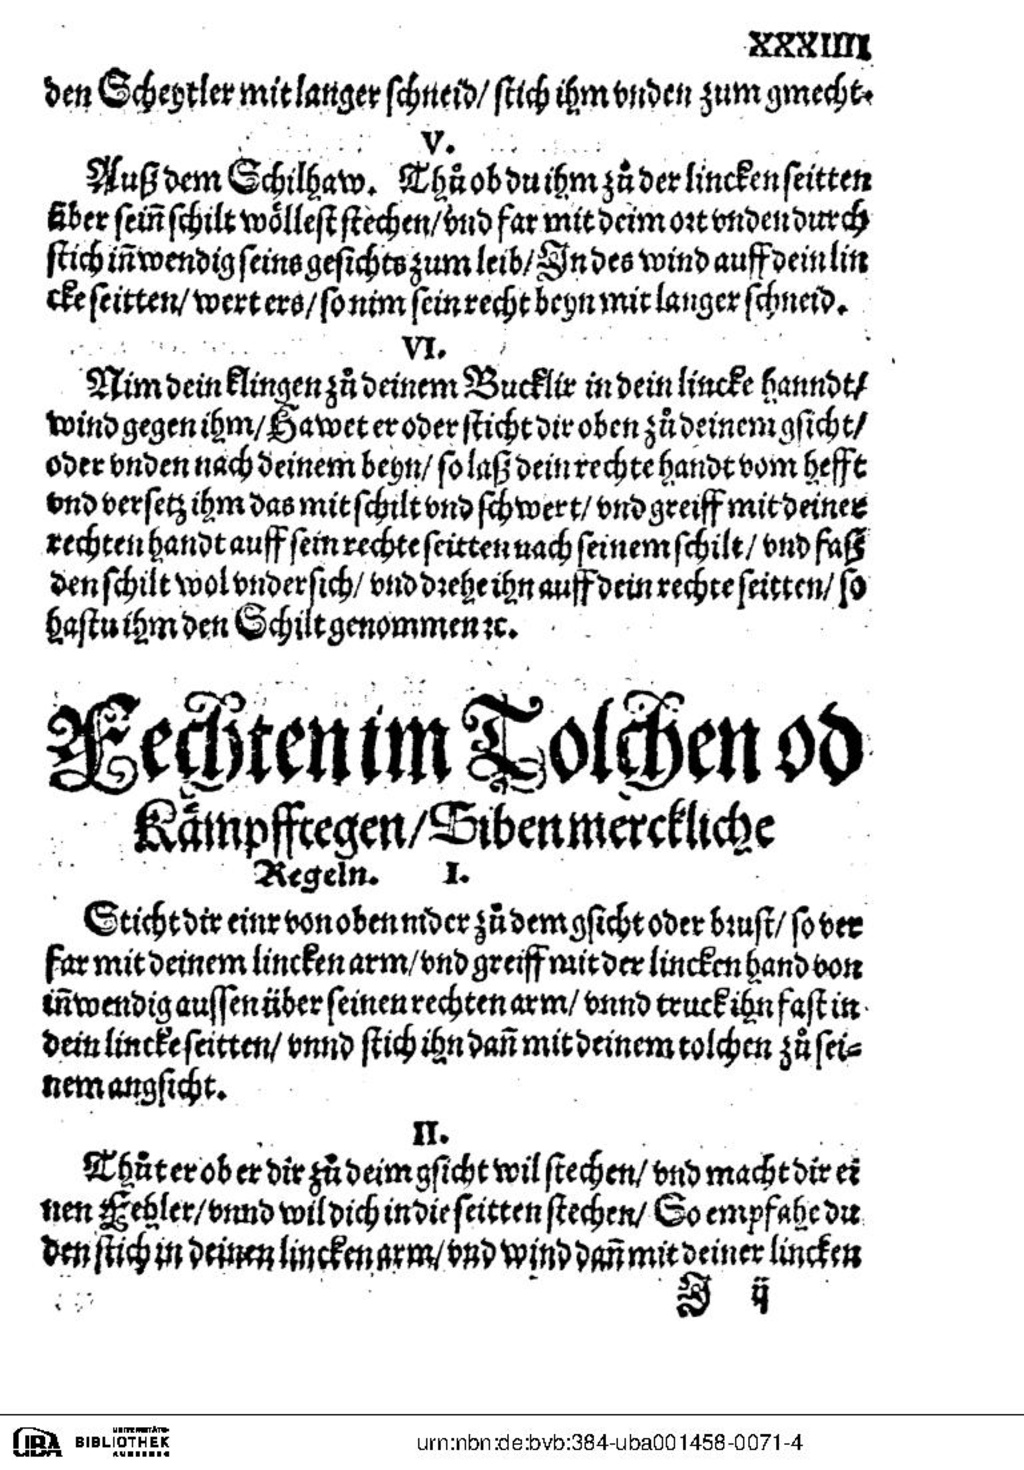 XXXIIII
den Scheytler mit langer schneid/ stich ihm vnden zum gmecht.
V.
Auß dem Schilhaw. Thů ob du ihm zů der lincken seitten
über sein̄ schilt wöllest stechen/ vnd far mit deim ort vnden durch
stich in̄wendig seins gesichts zum leib/ In des wind auff dein lin
cke seitten/ wert ers/ so nim sein recht beyn mit langer schneid.
VI.
Nim dein klingen zů deinem Bucklir in dein lincke hanndt/
wind gegen ihm/ Hawet er oder sticht dir oben zů deinem gsicht/
oder vnden nach deinem beyn/ so laß dein rechte handt vom hefft
vnd versetz ihm das mit schilt vnd schwert/ vnd greiff mit deiner
rechten handt auff sein rechte seitten nach seinem schilt/ vnd faß
den schilt wol vndersich/ vnd drehe ihn auff dein rechte seitten/ so
hastu ihm den Schilt genommen ꝛc.
Fechten im Tolchen od
Kämpfftegen/ Siben merckliche
Regeln. I.
Sticht dir einr von oben nider zů dem gsicht oder brust/ so ver
far mit deinem lincken arm/ vnd greiff mit der lincken hand von
in̄wendig aussen über seinen rechten arm/ vnnd truck ihn fast in
dein lincke seitten/ vnnd stich ihn dan̄ mit deinem tolchen zů sei-
nem angsicht.
II.
Thůt er ob er dir zů deim gsicht wil stechen/ vnd macht dir ei
nen Fehler/ vnnd wil dich in die seitten stechen/ So empfahe du
den stich in deinen lincken arm/ vnd wind dan̄ mit deiner lincken
J ij
UBA UNIVERSITÄTS-
BIBLIOTHEK
AUGSBURG
urn:nbn:de:bvb:384-uba001458-0071-4